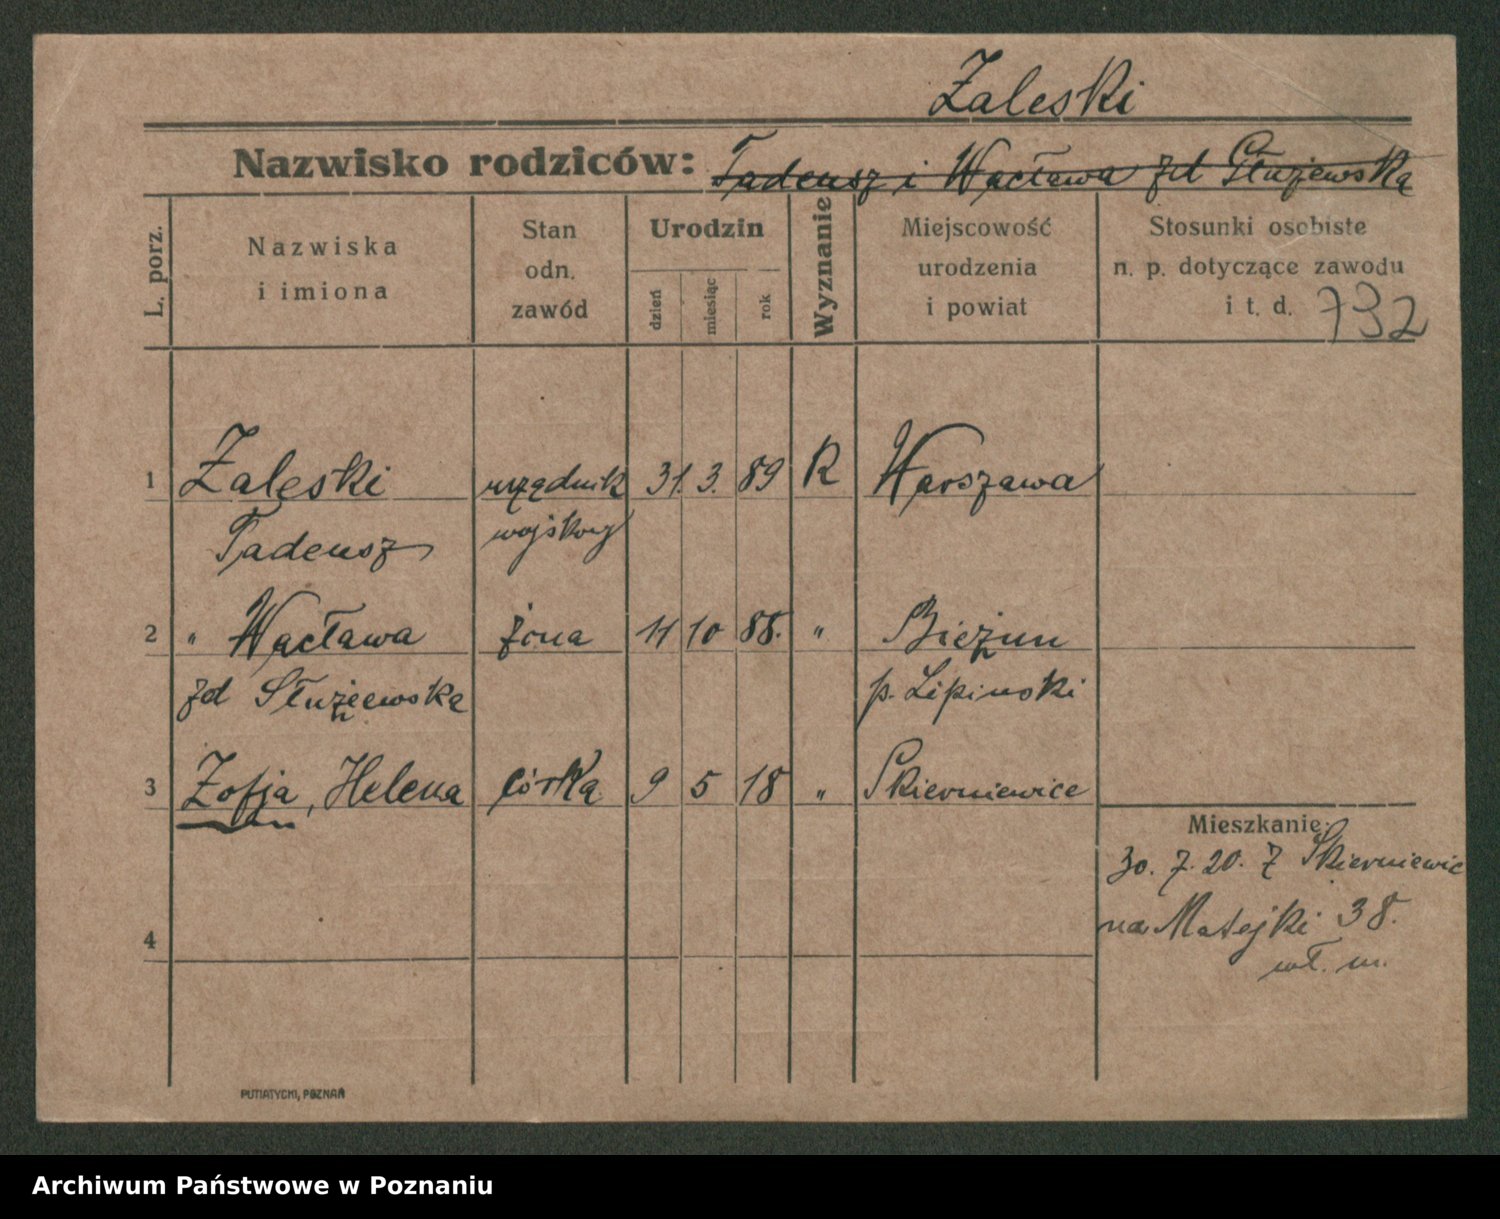 Zaleski
Nazwisko rodziców: Tadeusz i Wacława zd Służewska
L. porz.
Nazwiska
i imiona
Stan
odn.
zawód
Urodzin
dzień
miesiąc
rok
Wyznanie
Miejscowość
urodzenia
i powiat
Stosunki osobiste
n. p. dotyczące zawodu
i t. d. 732
1 Zaleski urzędnik 31. 3. 89 R Warszawa
Tadeusz wojskowy
2 " Wacława żona 11 10 88. " Bieżun
zd Służewska p. Lipinoski
3 Zofja, Helena córka 9 5 18 " Skierniewice
Mieszkanie:
30. 7. 20. z Skierniewic
na Matejki 38.
wł. m.
4
PUTIATYCKI, POZNAŃ
Archiwum Państwowe w Poznaniu